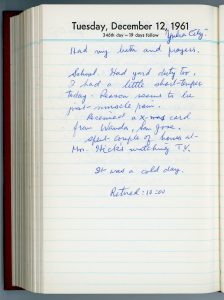 Tuesday, December 12, 1961
346th day — 19 days follow
Yuba City.
Had my bath and prayers.
School. Had yard duty too.
I had a little short-temper
today. Reason seems to be
post-muscle pain.
Received a x-mas card
from Wanda, San Jose.
Spent couple of hours at
Mrs. Hicks watching T.V.
It was a cold day.
Retired: 10:00